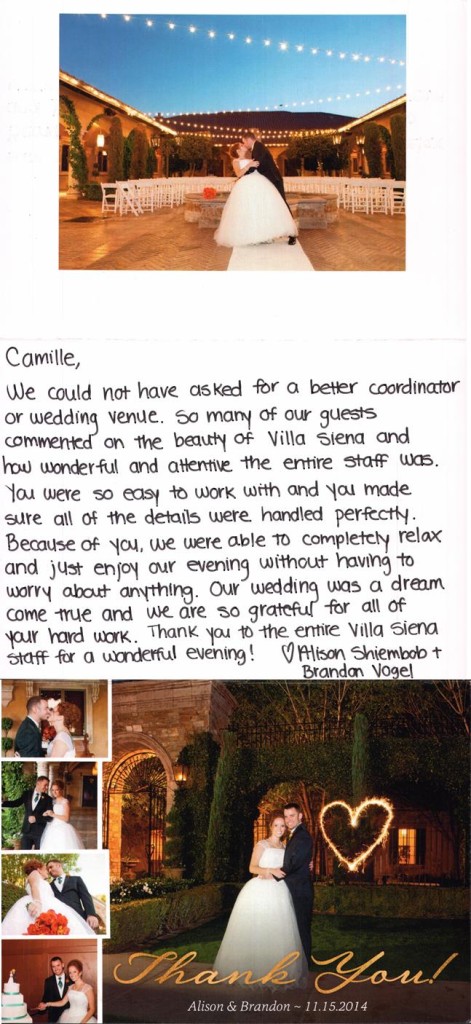 Camille,
We could not have asked for a better coordinator
or wedding venue. So many of our guests
commented on the beauty of Villa Siena and
how wonderful and attentive the entire staff was.
You were so easy to work with and you made
sure all of the details were handled perfectly.
Because of you, we were able to completely relax
and just enjoy our evening without having to
worry about anything. Our wedding was a dream
come true and we are so grateful for all of
your hard work. Thank you to the entire Villa Siena
staff for a wonderful evening! ♡Alison Shiembob +
Brandon Vogel
Thank You!
Alison & Brandon ~ 11.15.2014